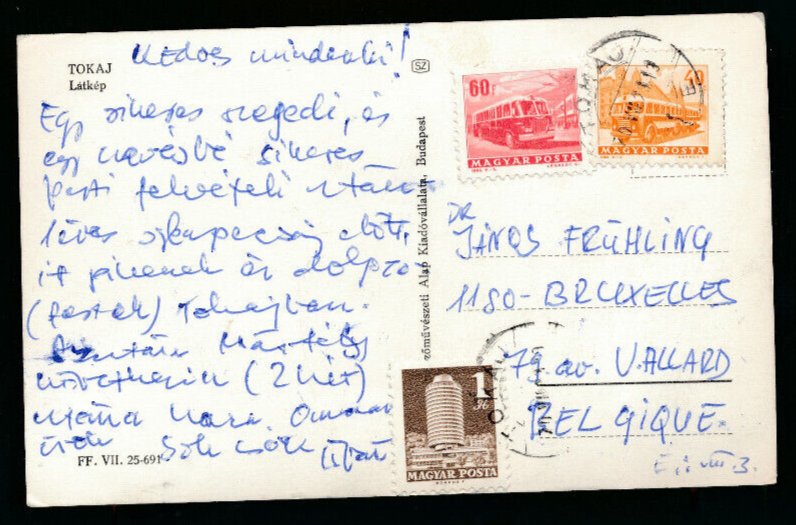 TOKAJ
Látkép
Kedves mindenki!
Egy sikeres szegedi, és
egy kevésbé sikeres
pesti felvételi után
előtt,
itt pihenek és dolgozo-
(festek) Tokajban.
Mártély
(2 hét)
utána haza. Onnan
írok. Sok csók
FF. VII. 25-691
SZ
zőművészeti Alap Kiadóvállalata, Budapest
60f
MAGYAR POSTA
40
MAGYAR POSTA
TOKAJ
DR
JÁNOS FRÜHLING
1180-BRUXELLES
79 av. V.ALLARD
BELGIQUE.
1
Ft
MAGYAR POSTA
TOKAJ